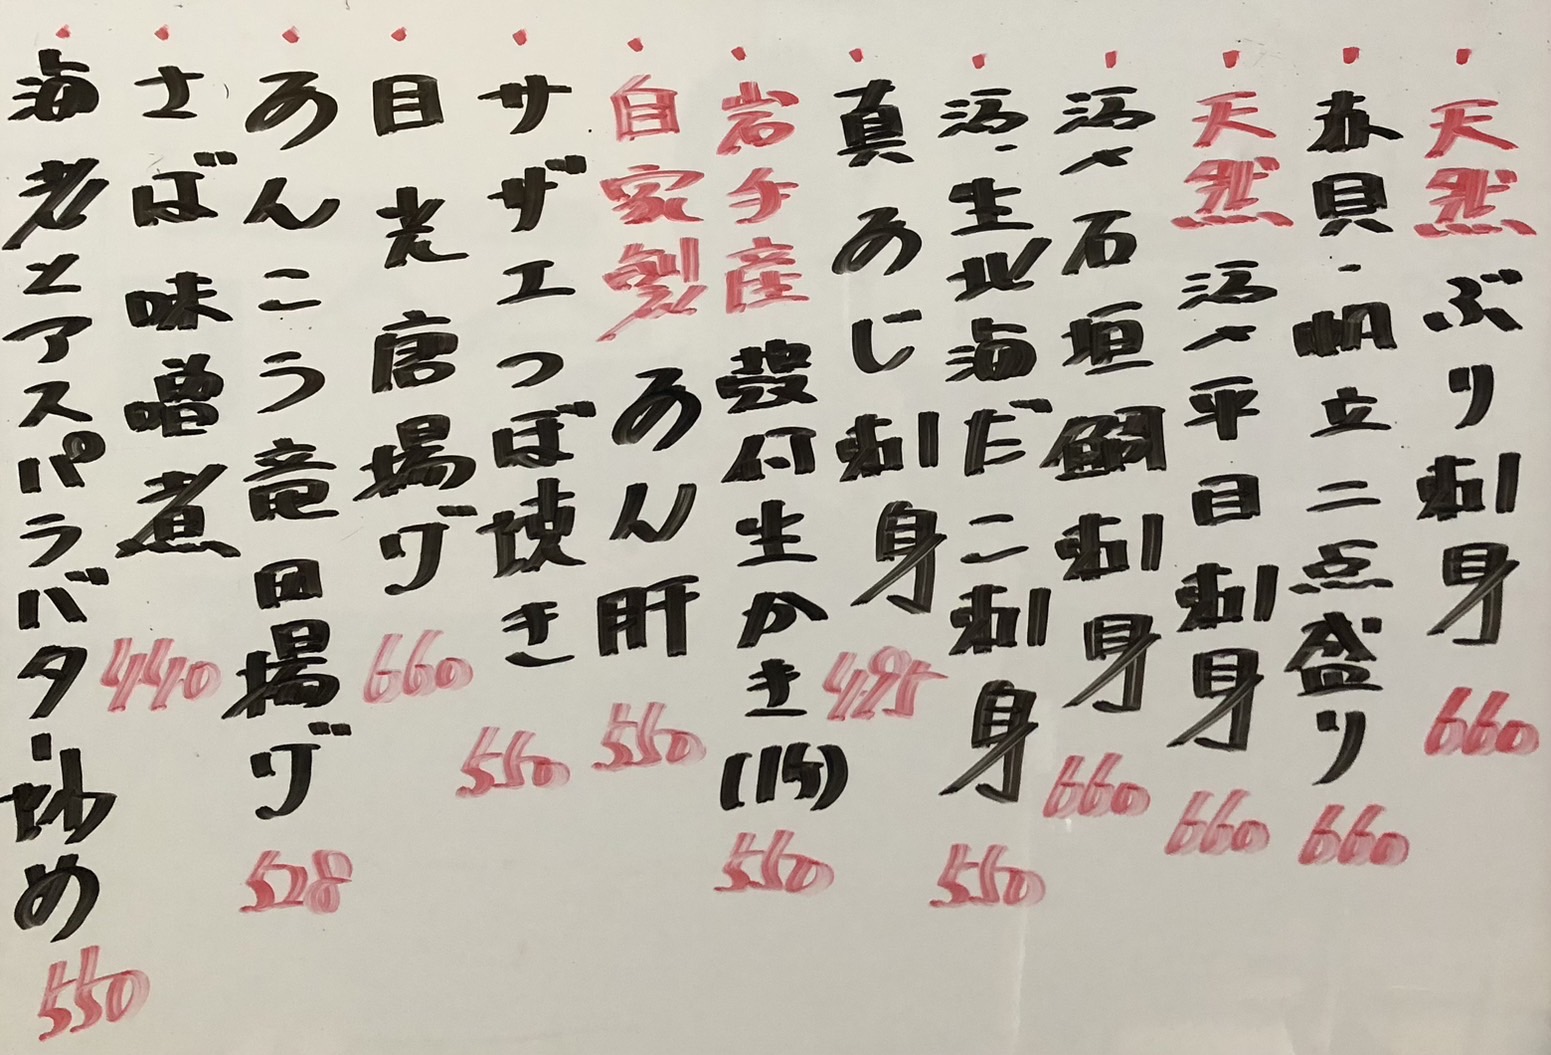 ・天然ぶり刺身 660
・赤貝・帆立二点盛り 660
・天然活〆平目刺身 660
・活〆石垣鯛刺身 660
・活・生北海だこ刺身 550
・真あじ刺身 495
・岩手産殻付生かき(1ケ) 550
・自家製あん肝 550
・サザエつぼ焼き 550
・目光唐揚げ 660
・あんこう竜田揚げ 528
・さば味噌煮 440
・海老とアスパラバター炒め 550